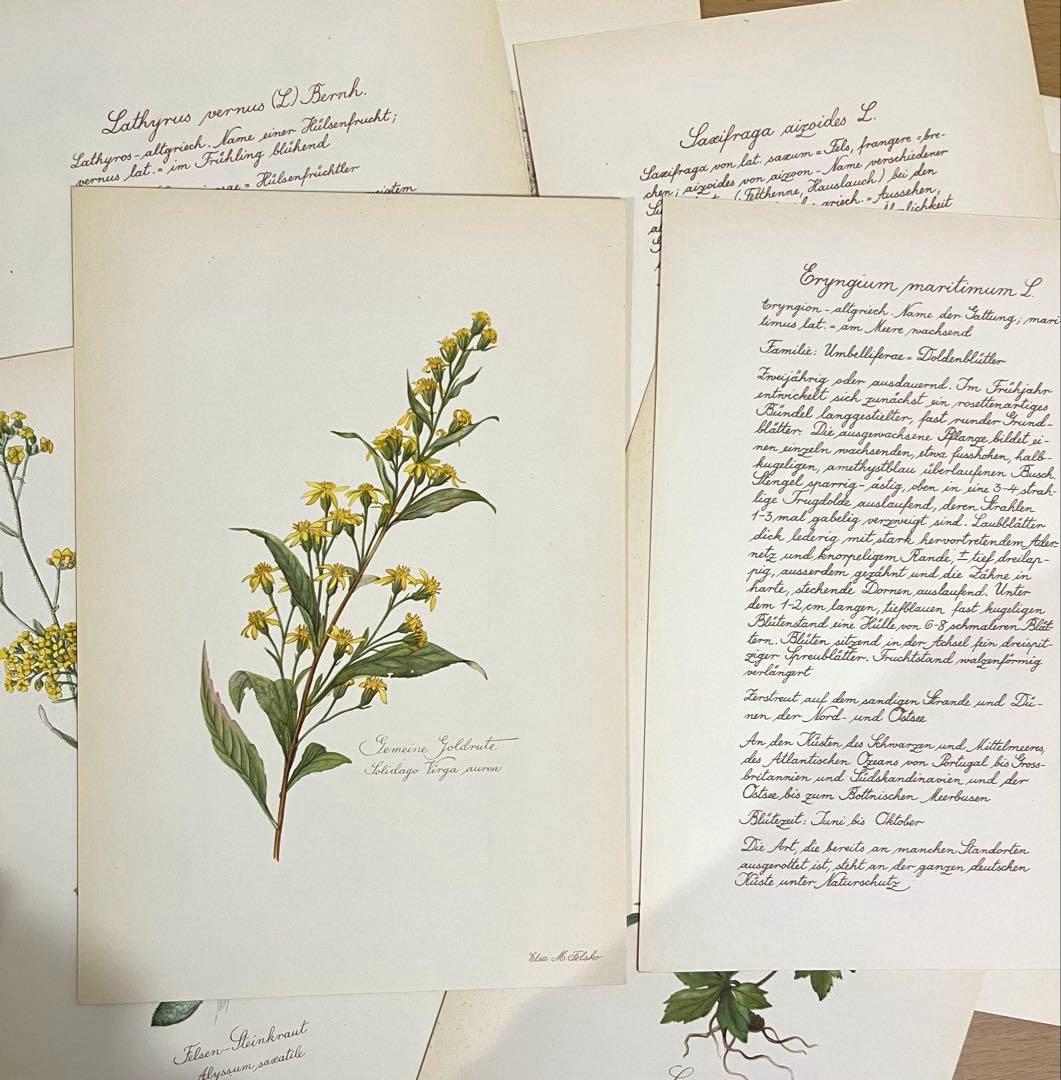 Lathyrus vernus (L.) Bernh.
Lathyros - altgriech. Name einer Hülsenfrucht;
vernus lat. = im Frühling blühend
= Hülsenfrüchtler
Saxifraga aizoides L.
Saxifraga von lat. saxum = Fels, frangere = bre-
chen; aizoides von aizoon - Name verschiedener
(Fetthenne, Hauslauch) bei den
griech. = Aussehen,
Ähnlichkeit
Gemeine Goldrute
Solidago Virga aurea
Elsa M. Felsko
Eryngium maritimum L.
Eryngion - altgriech. Name der Gattung; mari-
timus lat. = am Meere wachsend
Familie: Umbelliferae = Doldenblütler
Zweijährig oder ausdauernd. Im Frühjahr
entwickelt sich zunächst ein rosettenartiges
Bündel langgestielter, fast runder Grund-
blätter. Die ausgewachsene Pflanze bildet ei-
nen einzeln wachsenden, etwa fusshohen, halb-
kugeligen, amethystblau überlaufenen Busch.
Stengel sparrig-ästig, oben in eine 3-4 strah-
lige Trugdolde auslaufend, deren Strahlen
1-3 mal gabelig verzweigt sind. Laubblätter
dick lederig mit stark hervortretendem Ader-
netz und knorpeligem Rande, ± tief dreilap-
pig, ausserdem gezähnt und die Zähne in
harte, stechende Dornen auslaufend. Unter
dem 1-2 cm langen, tiefblauen fast kugeligen
Blütenstand eine Hülle von 6-8 schmaleren Blät-
tern. Blüten sitzend in der Achsel fein dreispit-
ziger Spreublätter. Fruchtstand walzenförmig
verlängert
Zerstreut auf dem sandigen Strande und Dü-
nen der Nord- und Ostsee
An den Küsten des Schwarzen und Mittelmeeres,
des Atlantischen Ozeans von Portugal bis Gross-
britannien und Südskandinavien und der
Ostsee bis zum Bottnischen Meerbusen
Blütezeit: Juni bis Oktober
Die Art, die bereits an manchen Standorten
ausgerottet ist, steht an der ganzen deutschen
Küste unter Naturschutz
Felsen-Steinkraut
Alyssum saxatile